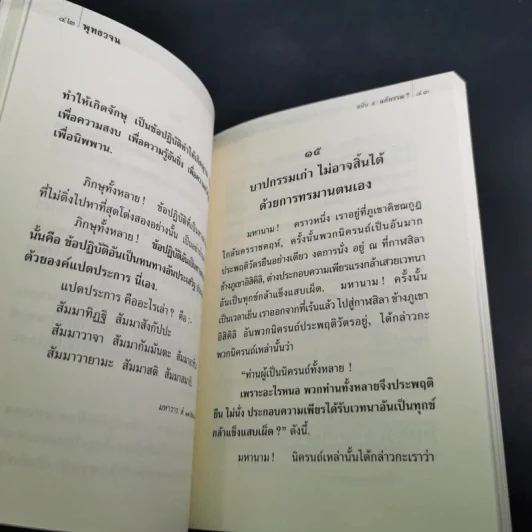 ๔๒ | พุทธวจน
ทำให้เกิดจักษุ เป็นข้อปฏิบัติทำให้เกิด
เพื่อความสงบ เพื่อความรู้อันยิ่ง เพื่อความ
เพื่อนิพพาน.
ภิกษุทั้งหลาย ! ข้อปฏิบัติที่เป็น
ที่ไม่ดิ่งไปหาที่สุดโต่งสองอย่างนั้น เป็น
ภิกษุทั้งหลาย ! ข้อปฏิบัติอัน
นั้นคือ ข้อปฏิบัติอันเป็นหนทางอันประเสริฐ
ด้วยองค์แปดประการ นี่เอง.
แปดประการ คืออะไรเล่า ? คือ :-
สัมมาทิฏฐิ สัมมาสังกัปปะ
สัมมาวาจา สัมมากัมมันตะ สัมมา
สัมมาวายามะ สัมมาสติ สัมมาสมาธิ.
มหาวาร. สํ
ฉบับ ๕ แก้กรรม ? ๔๓
๑๕
บาปกรรมเก่า ไม่อาจสิ้นได้
ด้วยการทรมานตนเอง
มหานาม ! คราวหนึ่ง เราอยู่ที่ภูเขาคิชฌกูฏ
ใกล้นครราชคฤห์, ครั้งนั้นพวกนิครนถ์เป็นอันมาก
ประพฤติวัตรยืนอย่างเดียว งดการนั่ง อยู่ ณ ที่กาฬสิลา
ข้างภูเขาอิสิคิลิ, ต่างประกอบความเพียรแรงกล้าเสวยเวทนา
อันเป็นทุกข์กล้าแข็งแสบเผ็ด. มหานาม ! ครั้งนั้น
เป็นเวลาเย็น เราออกจากที่เร้นแล้ว ไปสู่กาฬสิลา ข้างภูเขา
อิสิคิลิ อันพวกนิครนถ์ประพฤติวัตรอยู่, ได้กล่าวกะ
พวกนิครนถ์เหล่านั้นว่า
“ท่านผู้เป็นนิครนถ์ทั้งหลาย !
เพราะอะไรหนอ พวกท่านทั้งหลายจึงประพฤติ
ยืน ไม่นั่ง ประกอบความเพียรได้รับเวทนาอันเป็นทุกข์
กล้าแข็งแสบเผ็ด ?” ดังนี้.
มหานาม ! นิครนถ์เหล่านั้นได้กล่าวกะเราว่า